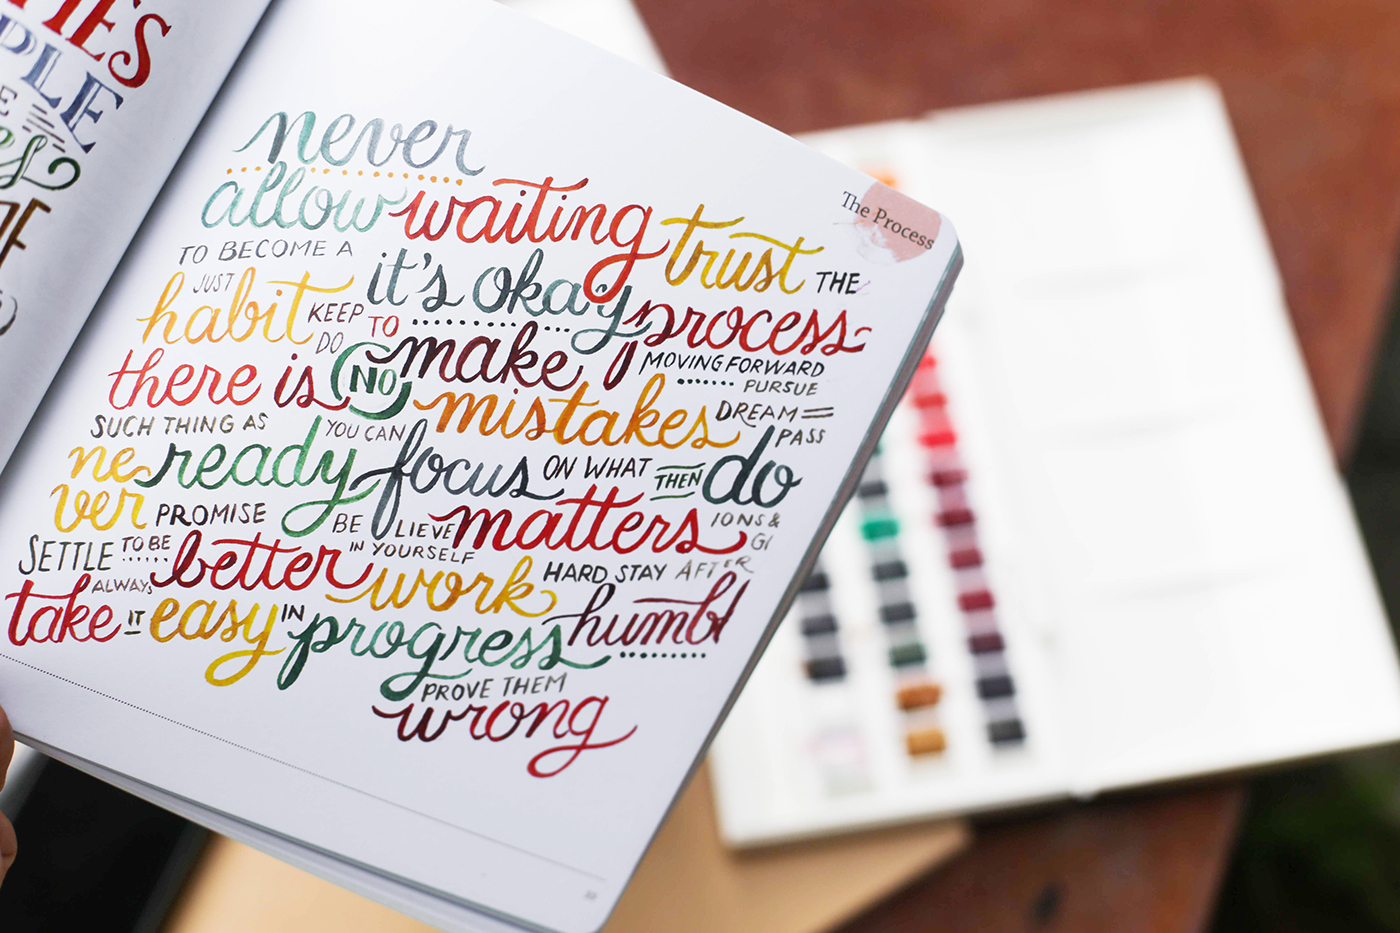 never
allow waiting trust THE
TO BECOME A it's okay process
JUST
habit KEEP TO make MOVING FORWARD
DO
there is NO mistakes PURSUE
DREAM
SUCH THING AS YOU CAN PASS
ne ready focus ON WHAT THEN do
ver PROMISE BE LIEVE matters IONS &
GI
SETTLE TO BE better IN YOURSELF
ALWAYS work HARD STAY AFTER
take IT easy IN progress humbl
PROVE THEM
wrong
The Process
PLE